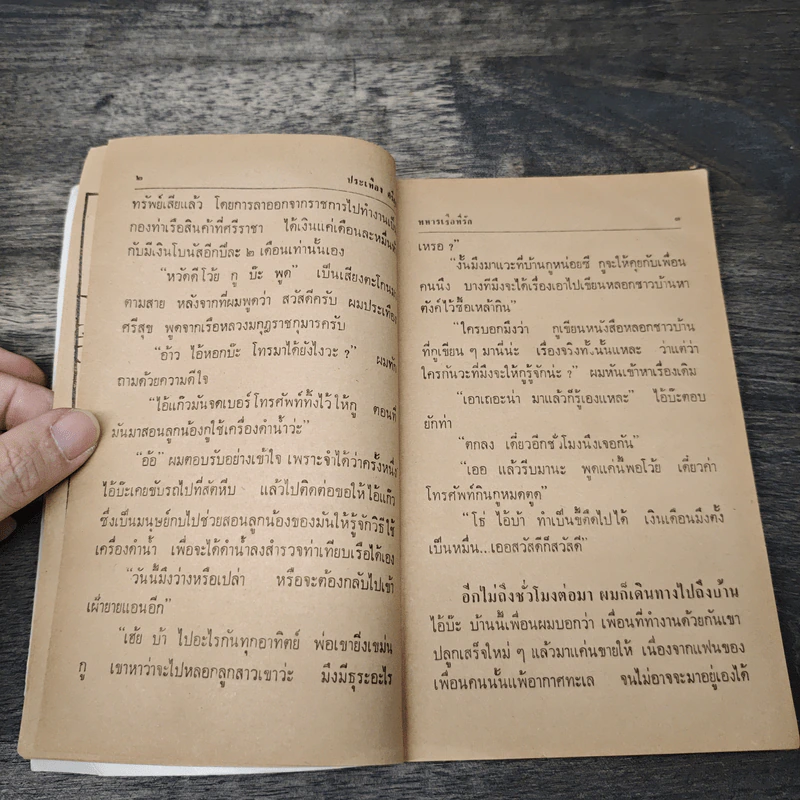 ๒ ประเทือง
ทรัพย์เสียแล้ว โดยการลาออกจากราชการไปทำงานเป็น
กองท่าเรือสินค้าที่ศรีราชา ได้เงินแค่เดือนละหมื่น
กับมีเงินโบนัสอีกปีละ ๒ เดือนเท่านั้นเอง
“หวัดดีโว้ย กู บ๊ะ พูด” เป็นเสียงตะโกน
ตามสาย หลังจากที่ผมพูดว่า สวัสดีครับ ผมประเทือง
ศรีสุข พูดจากเรือหลวงมกุฎราชกุมารครับ
“อ้าว ไอ้หอกบ๊ะ โทรมาได้ยังไงวะ ?” ผมทัก
ถามด้วยความดีใจ
“ไอ้แก๊วมันจดเบอร์โทรศัพท์ทิ้งไว้ให้กู ตอนที่
มันมาสอนลูกน้องกูใช้เครื่องดำน้ำว่ะ”
“อ้อ” ผมตอบรับอย่างเข้าใจ เพราะจำได้ว่าครั้งหนึ่ง
ไอ้บ๊ะเคยขับรถไปที่สัตหีบ แล้วไปติดต่อขอให้ไอ้แก๊ว
ซึ่งเป็นมนุษย์กบไปช่วยสอนลูกน้องของมันให้รู้จักวิธีใช้
เครื่องดำน้ำ เพื่อจะได้ดำน้ำลงสำรวจท่าเทียบเรือได้เอง
“วันนี้มึงว่างหรือเปล่า หรือจะต้องกลับไปเข้า
เฝ้ายายแอนอีก”
“เฮ้ย บ้า ไปอะไรกันทุกอาทิตย์ พ่อเขายิ่งเขม่น
กู เขาหาว่าจะไปหลอกลูกสาวเขาว่ะ มึงมีธุระอะไร
ทหารเรือที่รัก ๓
เหรอ ?”
“งั้นมึงมาแวะที่บ้านกูหน่อยซี กูจะให้คุยกับเพื่อน
คนนึง บางทีมึงจะได้เรื่องเอาไปเขียนหลอกชาวบ้านหา
ตังค์ไว้ซื้อเหล้ากิน”
“ใครบอกมึงว่า กูเขียนหนังสือหลอกชาวบ้าน
ที่กูเขียน ๆ มานี่น่ะ เรื่องจริงทั้งนั้นแหละ ว่าแต่ว่า
ใครกันวะที่มึงจะให้กูรู้จักน่ะ ?” ผมหันเข้าหาเรื่องเดิม
“เอาเถอะน่า มาแล้วก็รู้เองแหละ” ไอ้บ๊ะตอบ
ยักท่า
“ตกลง เดี๋ยวอีกชั่วโมงนึงเจอกัน”
“เออ แล้วรีบมานะ พูดแค่นี้พอโว้ย เดี๋ยวค่า
โทรศัพท์กินกูหมดตูด”
“โธ่ ไอ้บ้า ทำเป็นขี้ตืดไปได้ เงินเดือนมึงตั้ง
เป็นหมื่น...เออสวัสดีก็สวัสดี”
อีกไม่ถึงชั่วโมงต่อมา ผมก็เดินทางไปถึงบ้าน
ไอ้บ๊ะ บ้านนี้เพื่อนผมบอกว่า เพื่อนที่ทำงานด้วยกันเขา
ปลูกเสร็จใหม่ ๆ แล้วมาแค่นขายให้ เนื่องจากแฟนของ
เพื่อนคนนั้นแพ้อากาศทะเล จนไม่อาจจะมาอยู่เองได้